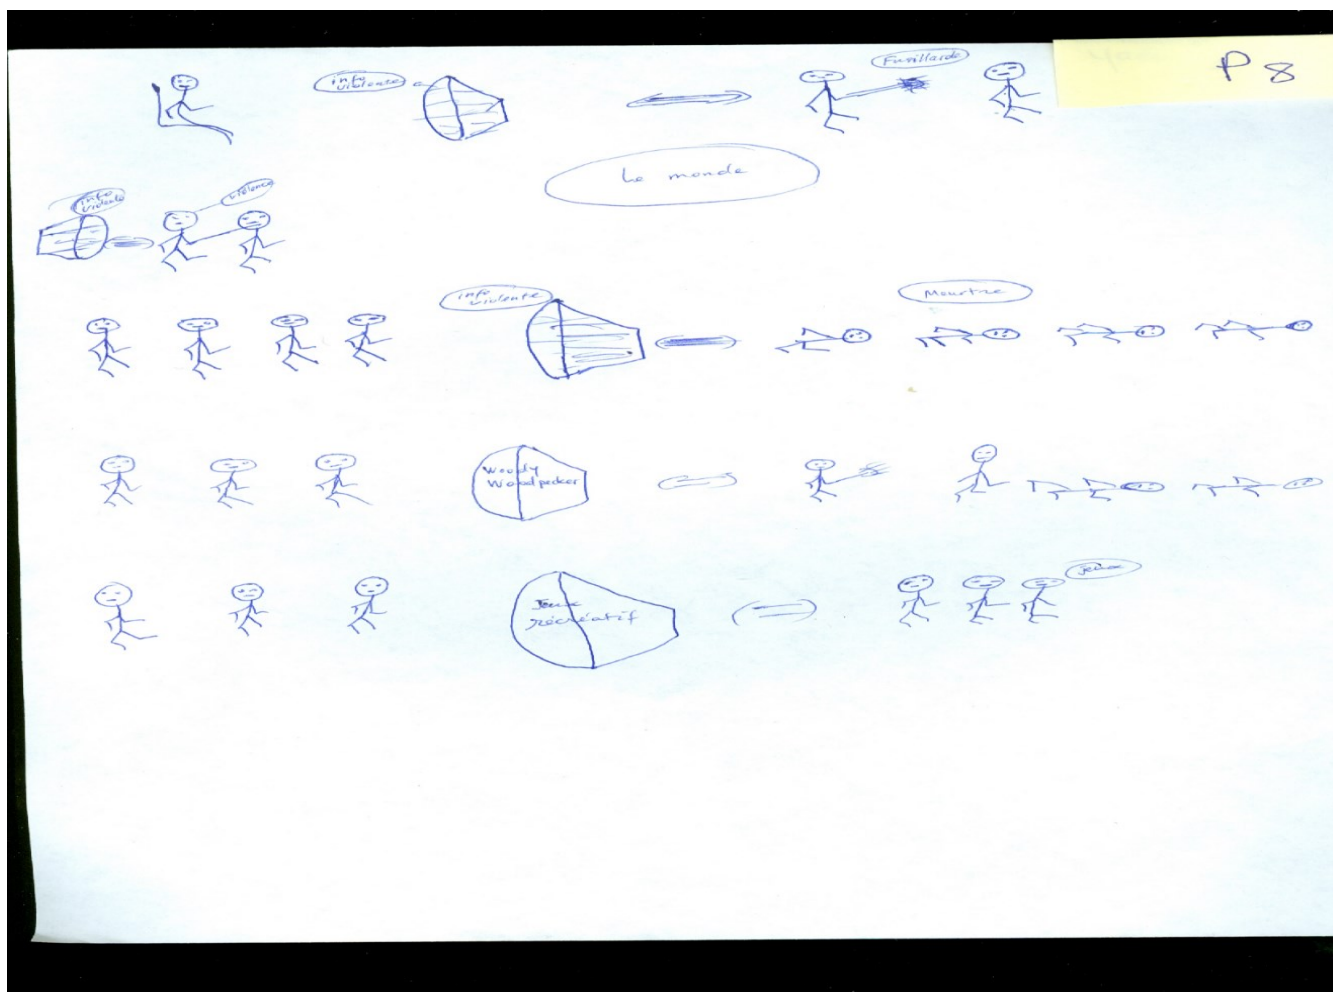 P8
info
violente
Fusillarde
Le monde
info
violente
violence
info
violente
Mourtre
Woody
Woodpecker
Jeux
récréatif
jeux